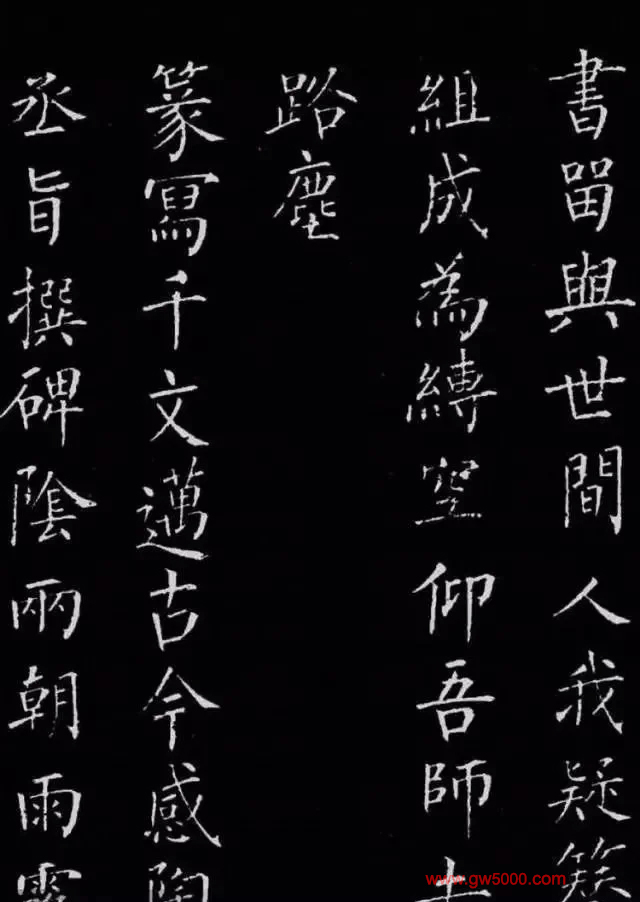 書留與世間人我疑
組成為縛空仰吾師
路塵
篆寫千文邁古今感陶
丞旨撰碑陰兩朝雨露
www.gw5000.com